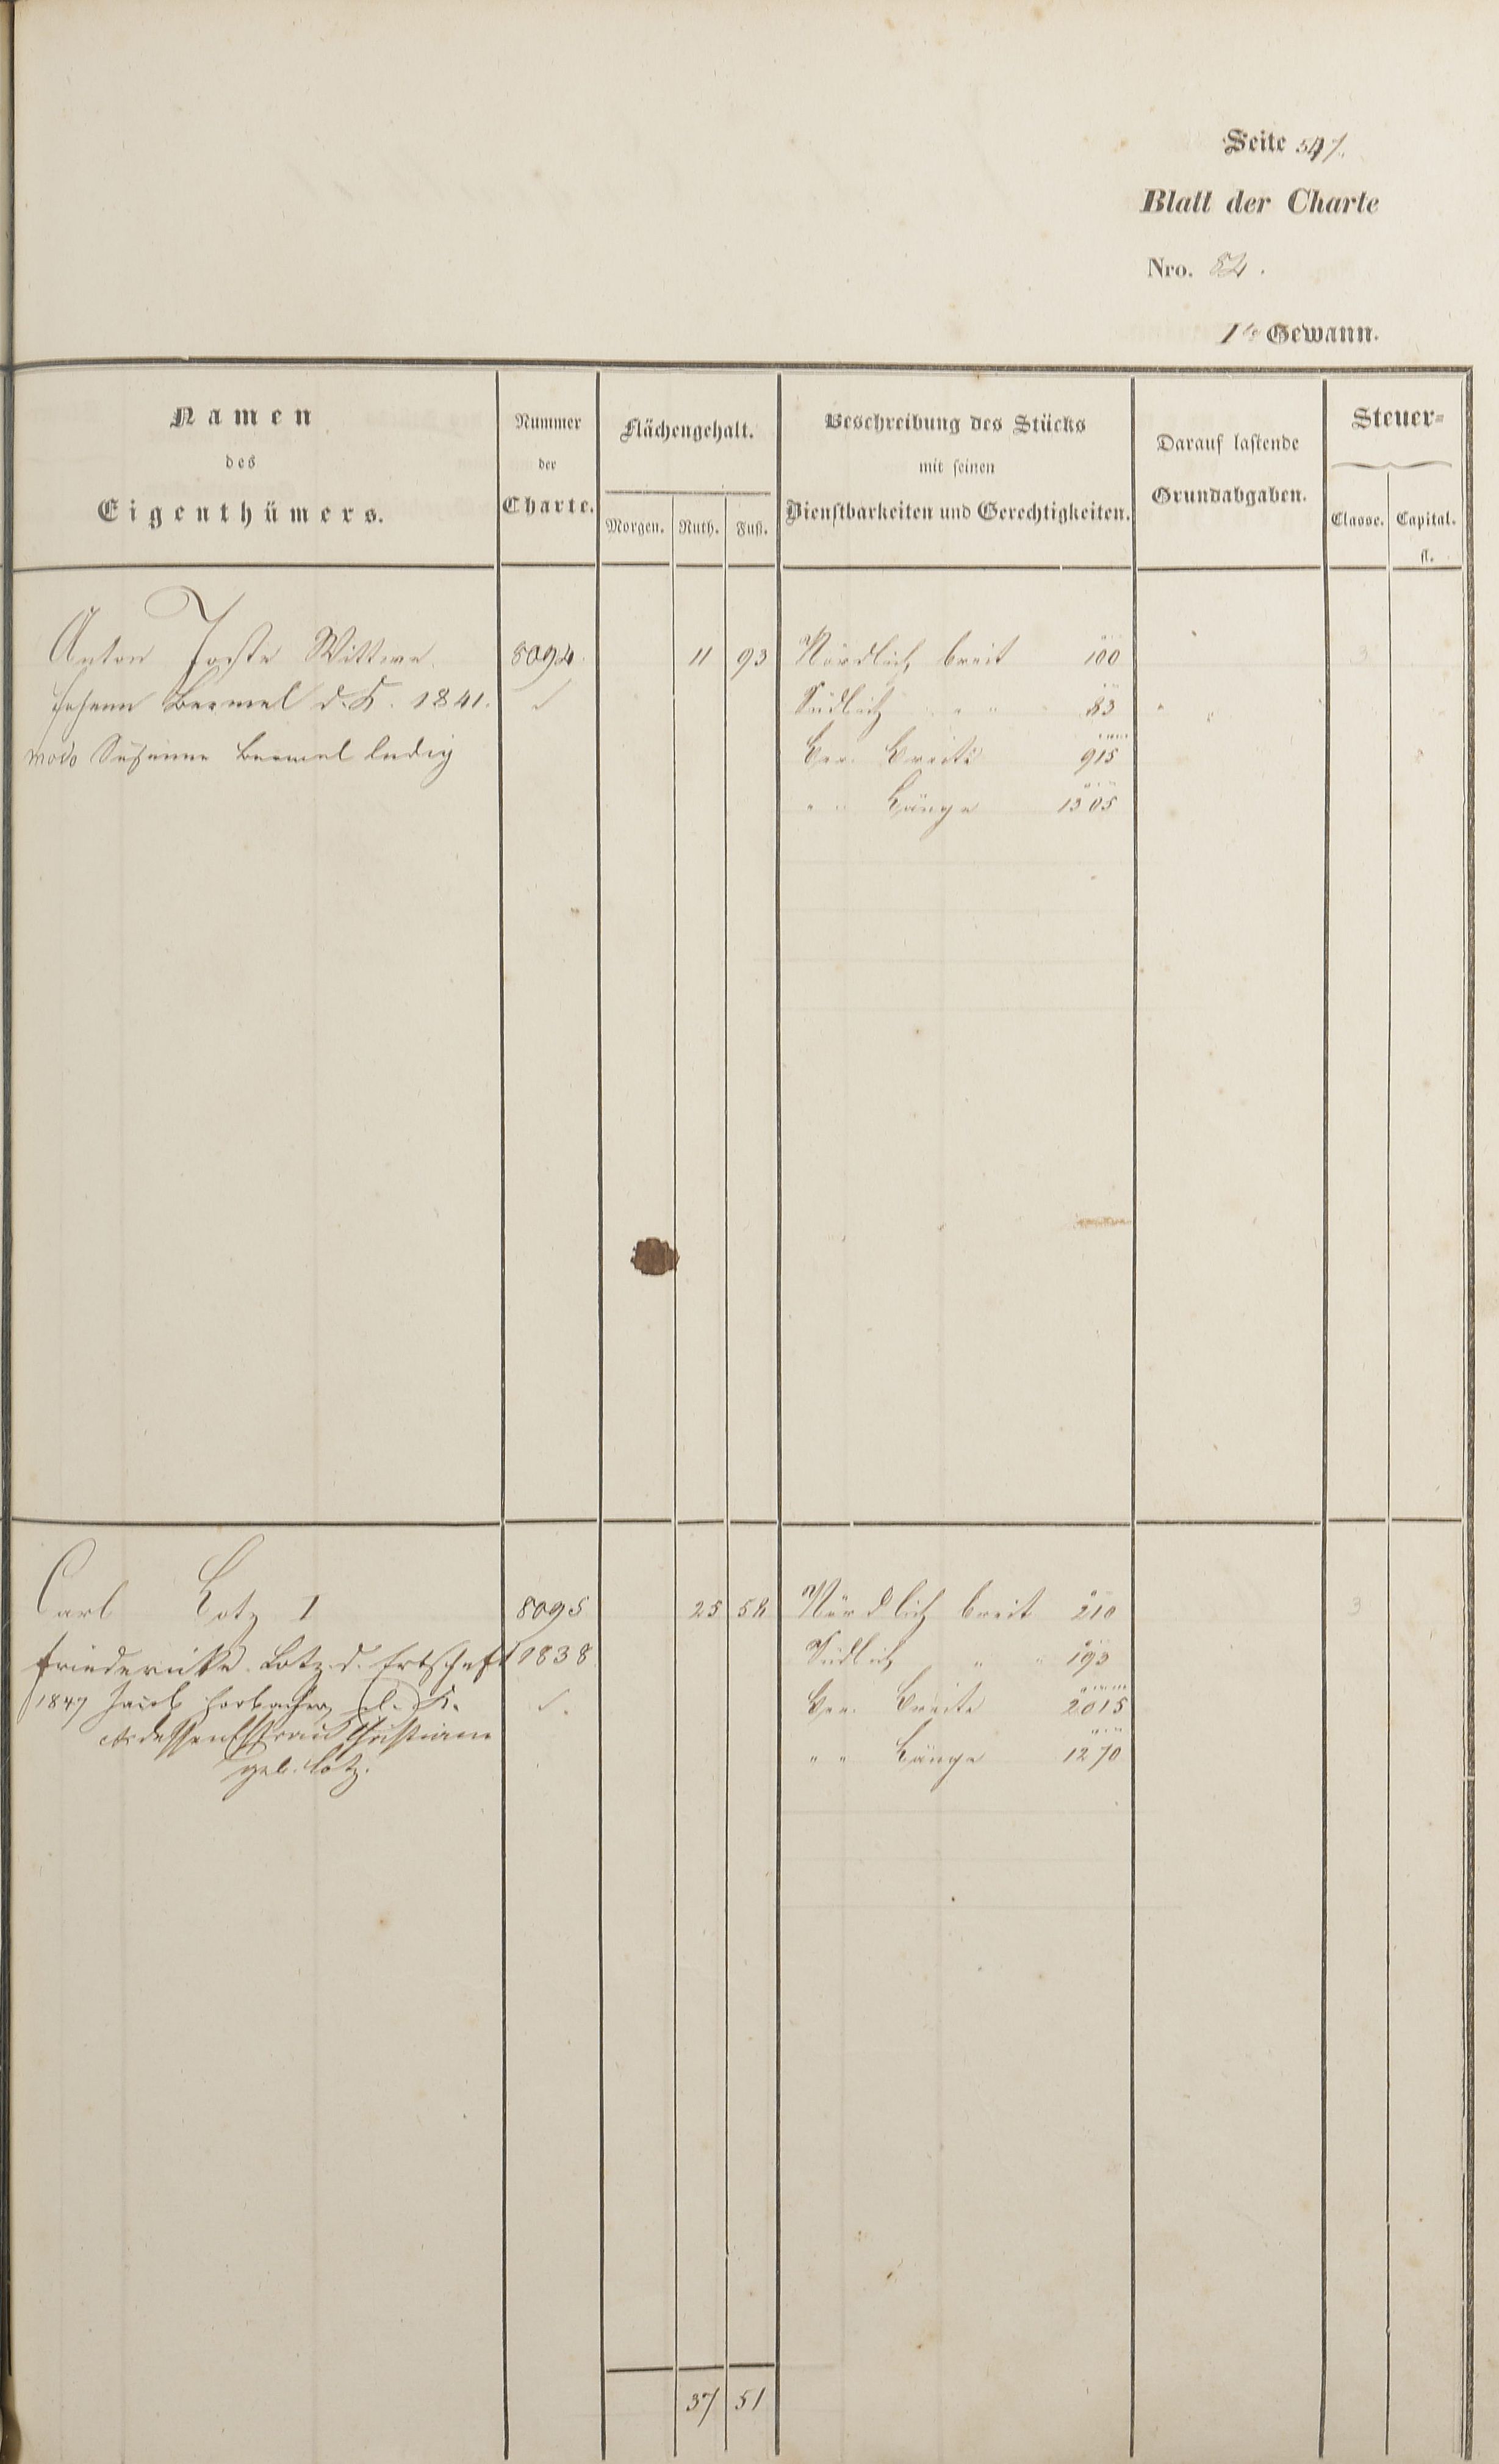 Seite 547.
Blatt der Charte
Nro. 84.
1te Gewann.
Namen
des
Eigenthümers.
Nummer
der
Charte.
Flächengehalt.
Morgen. Ruth. Fuß.
Beschreibung des Stücks
mit seinen
Dienstbarkeiten und Gerechtigkeiten.
Darauf lastende
Grundabgaben.
Steuer-
Classe. Capital.
fl.
Anton Wittwe 8094. 11 93 Nördlich breit 100 3
Johann Bermel d. K. 1841. Südlich " " 83
modo Susanna Bermel ledig Ger. Breite 915
" " Länge 1305
Carl Lotz I 8095 25 58 Nördlich breit 210 3
Friedericke Lotz d. Erbschaft 1838 Südlich " " 193
1847 Jacob d. K. Ger. Breite 2015
dessen Ehfrau Christiane " " Länge 1270
geb. Lotz.
37 51